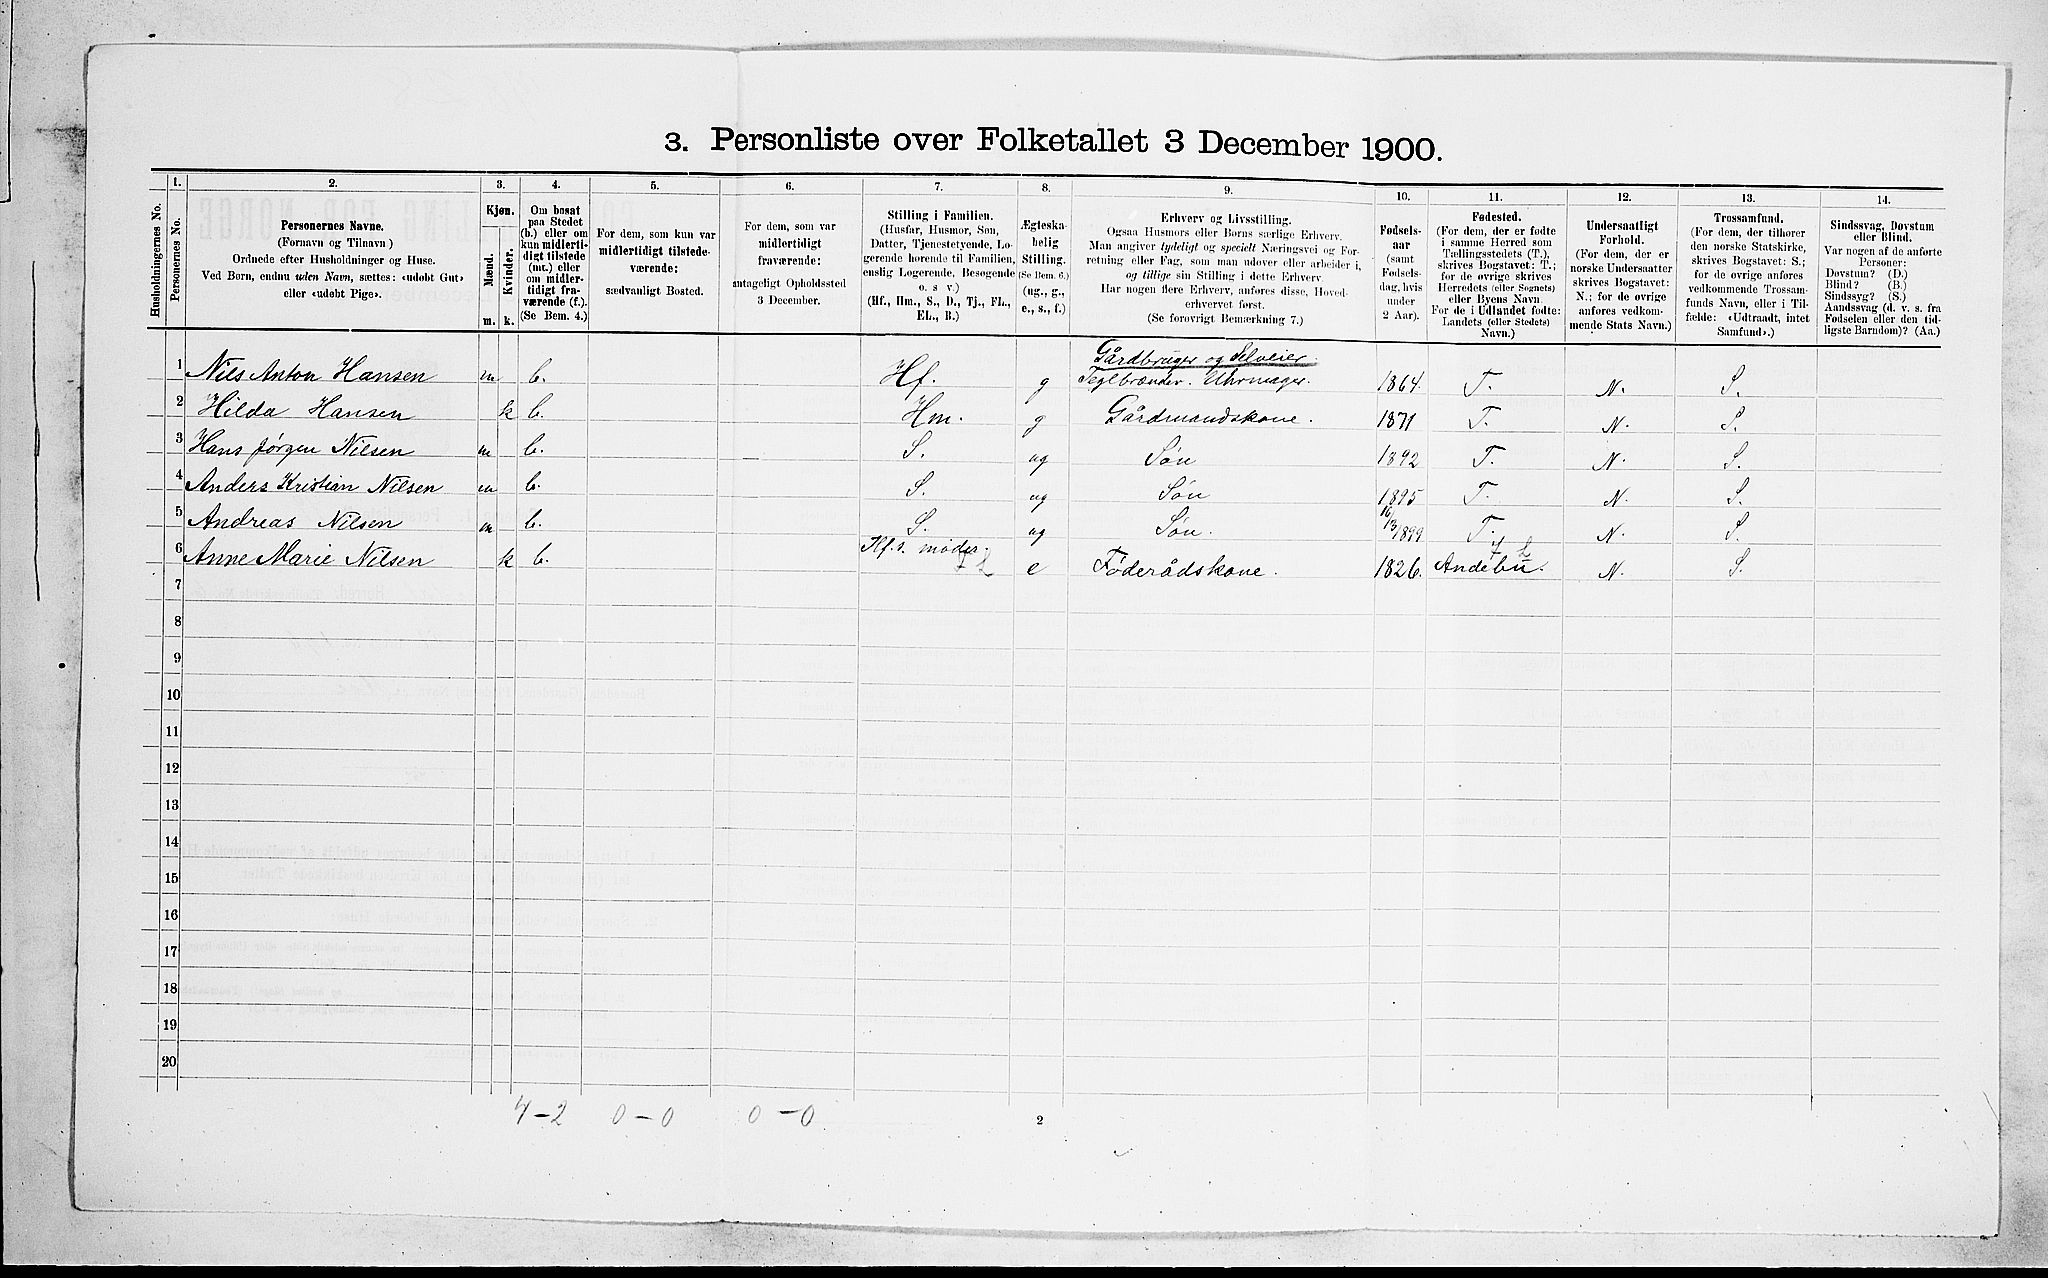 3. Personliste over Folketallet 3 December 1900.
Husholdningernes No.
1.
Personernes No.
2.
Personernes Navne.
(Fornavn og Tilnavn)
Ordnede efter Husholdninger og Huse.
Ved Børn, endnu uden Navn, sættes: «udøbt Gut»
eller «udøbt Pige».
3.
Kjøn.
Mænd.
Kvinder.
m.
k.
4.
Om bosat
paa Stedet
(b.) eller om
kun midlerti-
digt tilstede
(mt.) eller
om midler-
tidigt fra-
værende (f.).
(Se Bem. 4.)
5.
For dem, som kun var
midlertidigt tilstede-
værende:
sædvanligt Bosted.
6.
For dem, som var
midlertidigt
fraværende:
antageligt Opholdssted
3 December.
7.
Stilling i Familien.
(Husfar, Husmor, Søn,
Datter, Tjenestetyende, Lo-
gerende hørende til Familien,
enslig Logerende, Besøgende
o. s v.)
(Hf., Hm., S., D., Tj., FL.,
EL., B.)
8.
Ægteska-
belig
Stilling.
(Se Bem. 6.)
(ug., g.,
e., s., f.)
9.
Erhverv og Livsstilling.
Ogsaa Husmors eller Børns særlige Erhverv.
Man angiver tydeligt og specielt Næringsvei og For-
retning eller Fag, som man udøver eller arbeider i,
og tillige sin Stilling i dette Erhverv.
Har nogen flere Erhverv, anføres disse, Hoved-
erhvervet først.
(Se forøvrigt Bemærkning 7.)
10.
Fødsels-
aar
(samt
Fødsels-
dag, hvis
under
2 Aar).
11.
Fødested.
(For dem, der er fødte
i samme Herred som
Tællingsstedets (T.),
skrives Bogstavet: T.;
for de øvrige skrives
Herredets (eller Sognets)
eller Byens Navn.
For de i Udlandet fødte:
Landets (eller Stedets)
Navn.)
12.
Undersaatligt
Forhold.
(For dem, der er
norske Undersaatter
skrives Bogstavet:
N.; for de øvrige
anføres vedkom-
mende Stats Navn.)
13.
Trossamfund.
(For dem, der tilhører
den norske Statskirke,
skrives Bogstavet: S.;
for de øvrige anføres
vedkommende Trossam-
funds Navn, eller i Til-
fælde: «Udtraadt, intet
Samfund».)
14.
Sindssvag, Døvstum
eller Blind.
Var nogen af de anførte
Personer:
Døvstum? (D.)
Blind? (B.)
Sindssyg? (S.)
Aandssvag (d. v. s. fra
Fødselen eller den tid-
ligste Barndom)? (Aa.)
Gårdbruger og Selveier.
1 Nils Anton Hansen m b. Hf. g Teglbrænder. Uhrmager. 1864. T. N. S.
2 Hilda Hansen k b. Hm. g Gårdmandskone. 1871 T. N. S.
3 Hans Jørgen Nilsen m b. S. ug Søn 1892 T. N. S.
4 Anders Kristian Nilsen m b. S. ug Søn 1895 T. N. S.
5 Andreas Nilsen m b. S. ug Søn. 1899 T. N. S.
6 Anne Marie Nilsen k b. Hf.s. moder. e Føderådskone. 1826. Andebu. N. S.
7
8
9
10
11
12
13
14
15
16
17
18
19
20
4-2 0-0 0-0
2